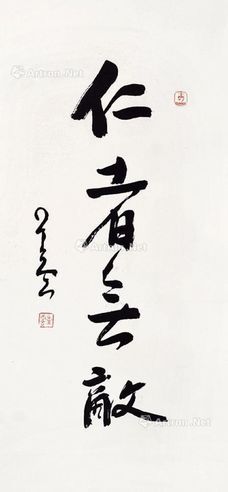 仁者無敵
Artron.Net
Artron.Net
Artron.Net